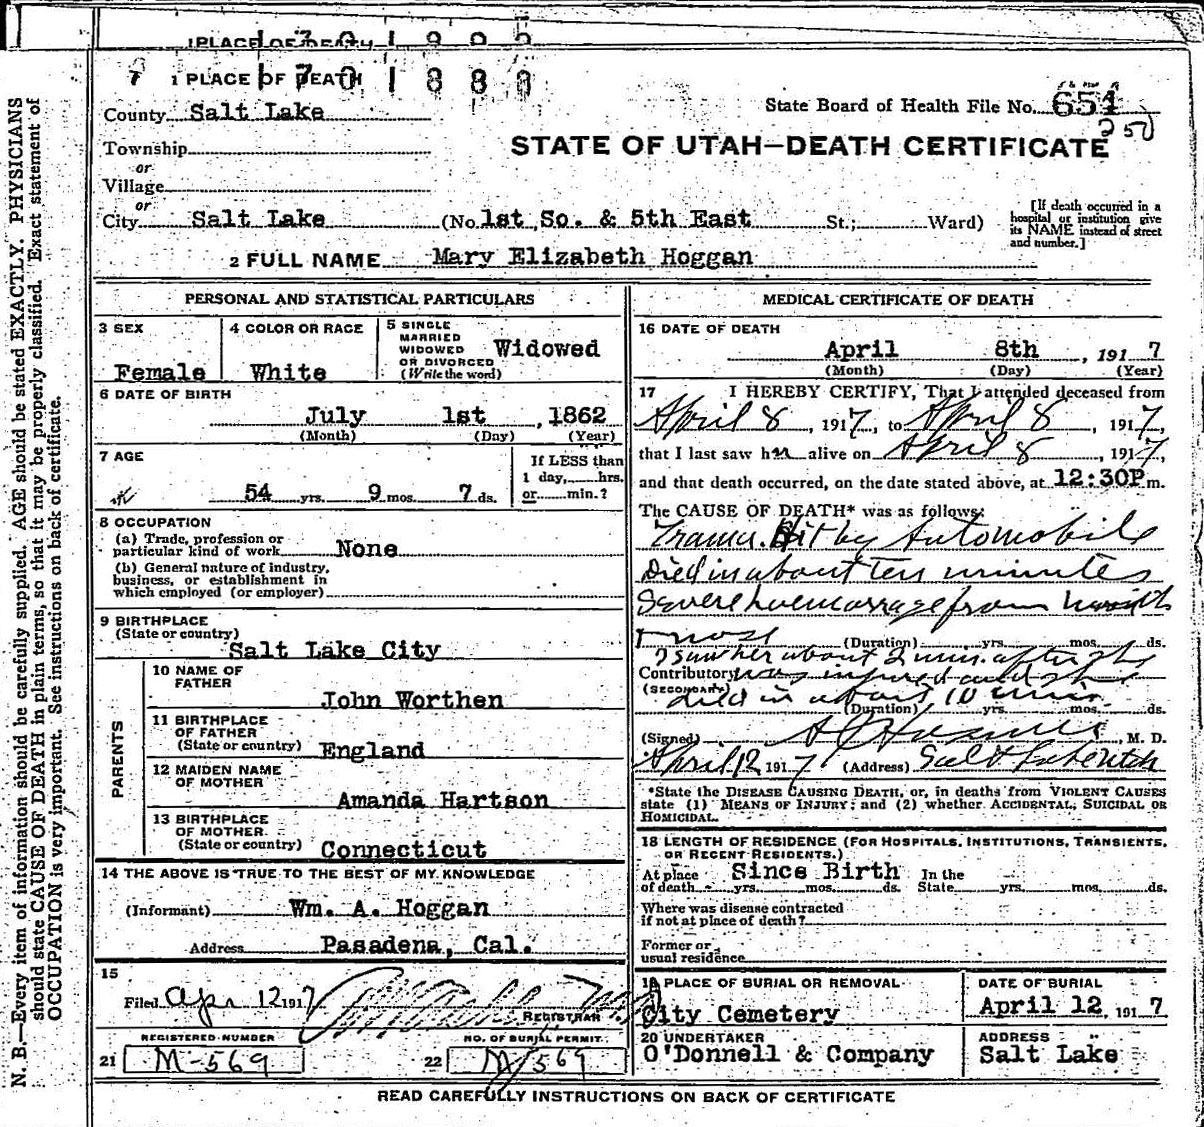 1 PLACE OF DEATH
1701888
County Salt Lake
State Board of Health File No. 654
250
STATE OF UTAH—DEATH CERTIFICATE
Township
or
Village
or
City Salt Lake (No 1st So. & 5th East St.; Ward)
[If death occurred in a hospital or institution give its NAME instead of street and number.]
2 FULL NAME Mary Elizabeth Hoggan
PERSONAL AND STATISTICAL PARTICULARS
3 SEX
Female
4 COLOR OR RACE
White
5 SINGLE
MARRIED
WIDOWED
OR DIVORCED
(Write the word)
Widowed
6 DATE OF BIRTH
July 1st, 1862
(Month) (Day) (Year)
7 AGE
54 yrs. 9 mos 7 ds.
If LESS than
1 day, hrs.
or min.?
8 OCCUPATION
(a) Trade, profession or
particular kind of work None
(b) General nature of industry,
business, or establishment in
which employed (or employer)
9 BIRTHPLACE
(State or country)
Salt Lake City
PARENTS
10 NAME OF
FATHER
John Worthen
11 BIRTHPLACE
OF FATHER
(State or country) England
12 MAIDEN NAME
OF MOTHER
Amanda Hartson
13 BIRTHPLACE
OF MOTHER
(State or country) Connecticut
14 THE ABOVE IS TRUE TO THE BEST OF MY KNOWLEDGE
(Informant) Wm. A. Hoggan
Address Pasadena, Cal.
15
Filed Apr 12 1917
REGISTRAR
REGISTERED NUMBER
21 M-569
NO. OF BURIAL PERMIT
22 M/569
MEDICAL CERTIFICATE OF DEATH
16 DATE OF DEATH
April 8th, 1917
(Month) (Day) (Year)
17 I HEREBY CERTIFY, That I attended deceased from
April 8, 1917, to April 8, 1917,
that I last saw her alive on April 8, 1917,
and that death occurred, on the date stated above, at 12:30P m.
The CAUSE OF DEATH* was as follows:
Hit by Automobile
Died in about ten minutes
Severe hoemorrage from mouth
nose
(Duration) yrs. mos. ds.
I saw her about 2 min. after she
Contributory was injured and she
(SECONDARY) died in about 10 min.
(Duration) yrs. mos. ds.
(Signed) M. D.
April 12 1917 (Address) Salt Lake Utah
*State the DISEASE CAUSING DEATH, or, in deaths from VIOLENT CAUSES
state (1) MEANS OF INJURY; and (2) whether ACCIDENTAL, SUICIDAL OR
HOMICIDAL.
18 LENGTH OF RESIDENCE (FOR HOSPITALS, INSTITUTIONS, TRANSIENTS,
OR RECENT RESIDENTS.)
At place Since Birth In the
of death yrs. mos. ds. State yrs. mos. ds.
Where was disease contracted
if not at place of death?
Former or
usual residence
19 PLACE OF BURIAL OR REMOVAL
City Cemetery
DATE OF BURIAL
April 12, 1917
20 UNDERTAKER
O'Donnell & Company
ADDRESS
Salt Lake
READ CAREFULLY INSTRUCTIONS ON BACK OF CERTIFICATE
N. B.—Every item of information should be carefully supplied. AGE should be stated EXACTLY. PHYSICIANS
should state CAUSE OF DEATH in plain terms, so that it may be properly classified. Exact statement of
OCCUPATION is very important. See instructions on back of certificate.